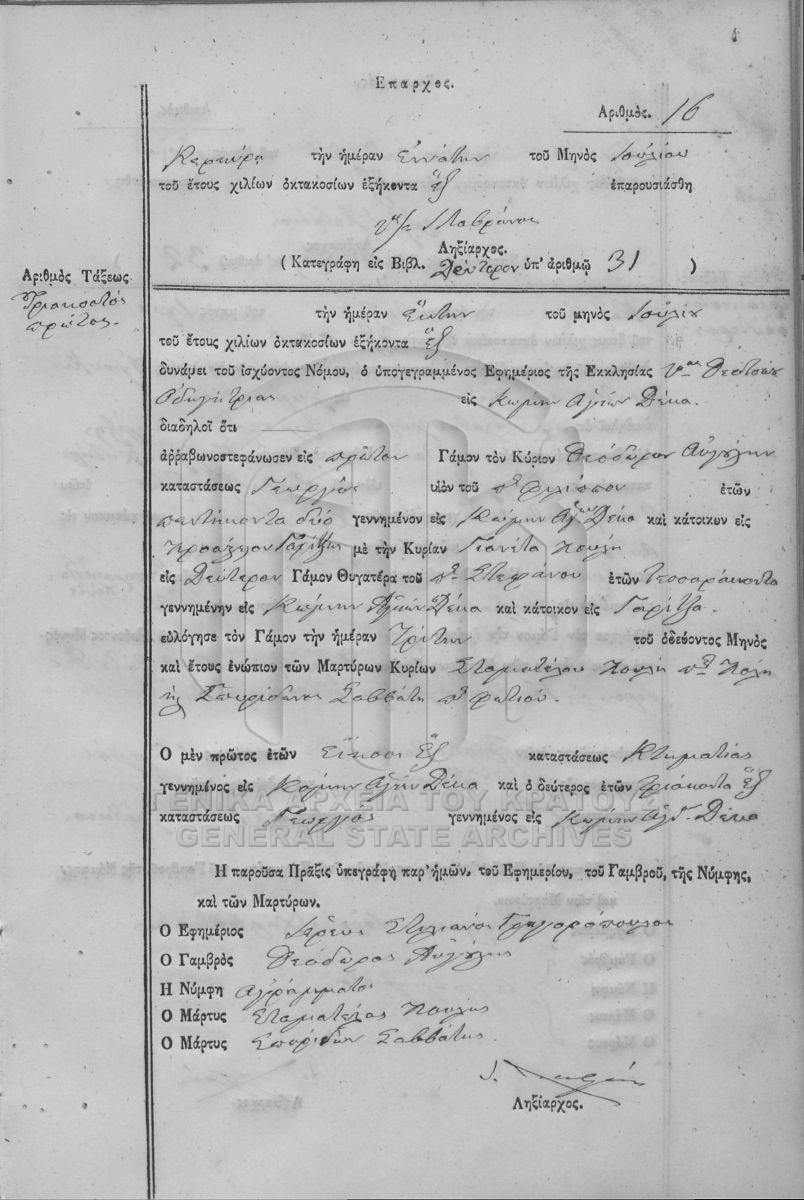 Επαρχος.
Αριθμὸς. 16
Κερκύρα τὴν ἡμέραν Ἐννάτην τοῦ Μηνὸς Ἰουλίου
τοῦ ἔτους χιλίων ὀκτακοσίων ἑξήκοντα ἓξ ἐπαρουσιάσθη
Ληξίαρχος.
( Κατεγράφη εἰς Βιβλ. Δεύτερον ὑπ' ἀριθμῷ 31 )
Αριθμὸς Τάξεως
Τριακοστός
πρῶτος.
τὴν ἡμέραν Ἕκτην τοῦ μηνὸς Ἰουλίου
τοῦ ἔτους χιλίων ὀκτακοσίων ἑξήκοντα ἓξ
δυνάμει τοῦ ἰσχύοντος Νόμου, ὁ ὑπογεγραμμένος Ἐφημέριος τῆς Εκκλησίας Θεοτόκου
Ὁδηγήτριας εἰς Κώμην Ἁγίων Δέκα.
διαδηλοῖ ὅτι
ἀῤῥαβωνοστεφάνωσεν εἰς πρῶτον Γάμον τὸν Κύριον Θεόδωρον Αὐγούλην
καταστάσεως Γεωργὸς υἱὸν τοῦ πτ Φιλίππου ἐτῶν
πεντήκοντα δύο γεννημένον εἰς Κώμην Αγ Δέκα καὶ κάτοικων εἰς
Προάστειον Γαρίτζης μὲ τὴν Κυρίαν Γιανέτα Κουλῆ
εἰς Δεύτερον Γάμον Θυγατέρα τοῦ πτ Στεφάνου ἐτῶν τεσσαράκοντα
γεννημένην εἰς Κώμην Ἁγίων Δέκα καὶ κάτοικον εἰς Γαρίτζα
εὐλόγησε τὸν Γάμον τὴν ἡμέραν Τρίτην τοῦ ὁδεύοντος Μηνὸς
καὶ ἔτους ἐνώπιον τῶν Μαρτύρων Κυρίων Σταματέλου
Σπυρίδωνος Σαββάτη πτ Φωτίου.
Ο μὲν πρῶτος ἐτῶν Εἴκοσι Ἓξ καταστάσεως Κτηματίας
γεννημένος εἰς Κώμην Αγίων Δέκα καὶ ὁ δεύτερος ἐτῶν τριάκοντα ἓξ
καταστάσεως Γεωργὸς γεννημένος εἰς Κώμην Αγ. Δέκα
ΓΕΝΙΚΑ ΑΡΧΕΙΑ ΤΟΥ ΚΡΑΤΟΥΣ
GENERAL STATE ARCHIVES
Η παροῦσα Πρᾶξις ὑπεγράφη παρ' ἡμῶν, τοῦ Εφημερίου, τοῦ Γαμβροῦ, τῆς Νύμφης,
καὶ τῶν Μαρτύρων.
Ο Εφημέριος Ἱερεὺς Στυλιανός Γρηγορόπουλος
Ο Γαμβρὸς Θεόδωρος Αὐγούλης
Η Νύμφη Αγράμματος
Ο Μάρτυς Σταματέλος Κουλῆς
Ο Μάρτυς Σπυρίδων Σαββάτης.
Ληξίαρχος.